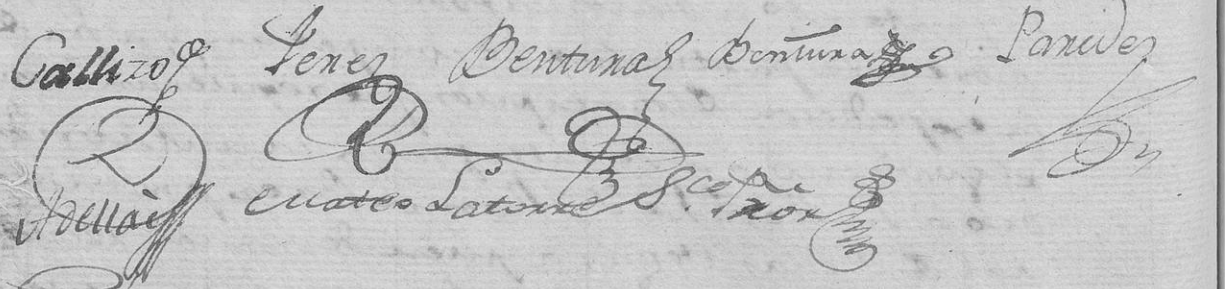 Callizo Perez Bentura Bentura Paredes
Abella Mateo Latorre